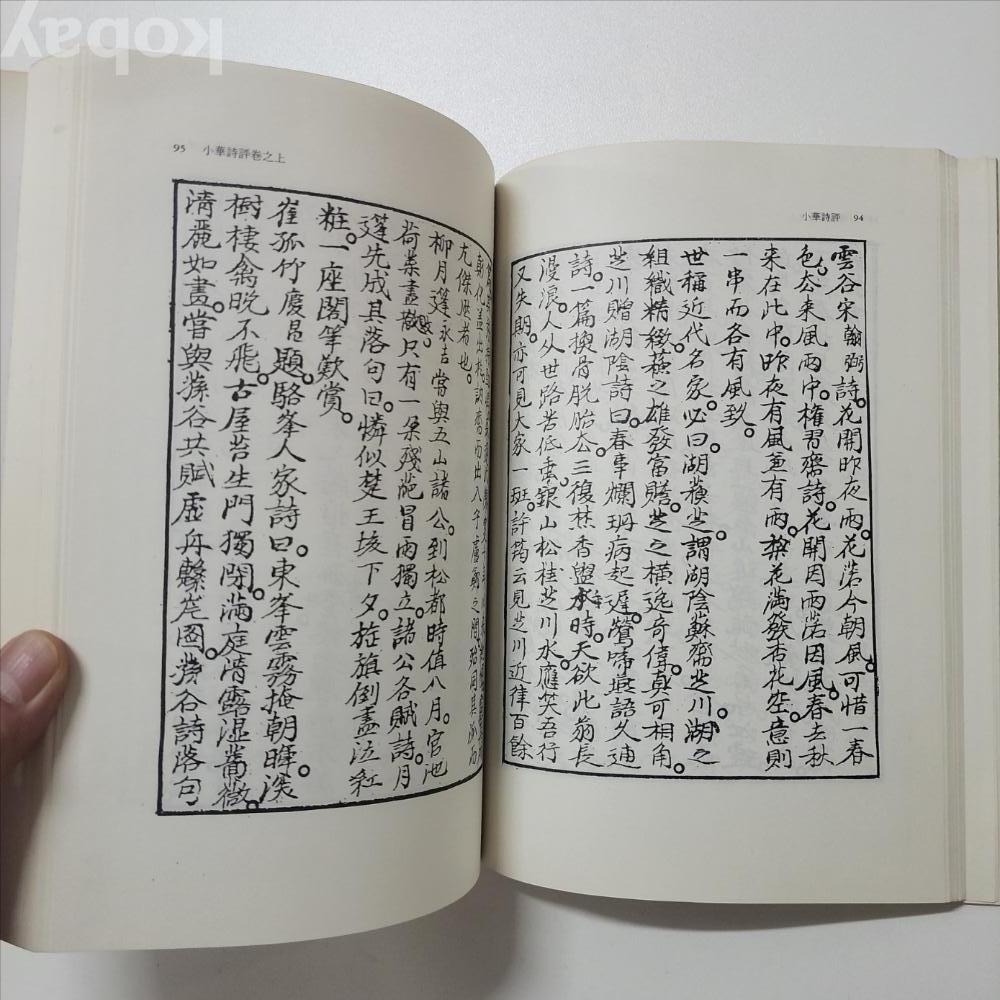 kobay
小華詩評 94
雲谷宋翰弼詩。花開昨夜雨。花落今朝風。可惜一春
色。去來風雨中。權習齋詩。花開因雨落因風。春去秋
來在此中。昨夜有風兼有雨。梨花滿發杏花空。意則
一串而各有風致。
世稱近代名家。必曰湖蘇芝。謂湖陰蘇齋芝川。湖之
組織精緻。蘇之雄發富贍。芝之橫逸奇偉。真可相角。
芝川贈湖陰詩曰。春事爛珊病起遲。鶯啼燕語久逋
詩。一篇換骨脫胎去。三復焚香盥手時。天欲此翁長
漫浪。人從世路苦低垂。銀山松桂芝川水。應笑吾行
又失期。亦可見大家一班。許筠云見芝川近律百餘
95 小華詩評卷之上
尤傑歷者也。
柳月篷永吉嘗與五山諸公。到松都。時值八月。官池
荷葉盡敗。只有一朶殘葩冒雨獨立。諸公各賦詩。月
篷先成其落句曰。憐似楚王垓下夕。旌旗倒盡泣紅
粧。一座閣筆歎賞。
崔孤竹慶昌題駱峯人家詩曰。東峯雲霧掩朝暉。深
樹棲禽晚不飛。古屋苔生門獨閉。滿庭淸露湿薔薇。
淸麗如畫。嘗與蓀谷共賦虛舟繫岸圖。蓀谷詩落句